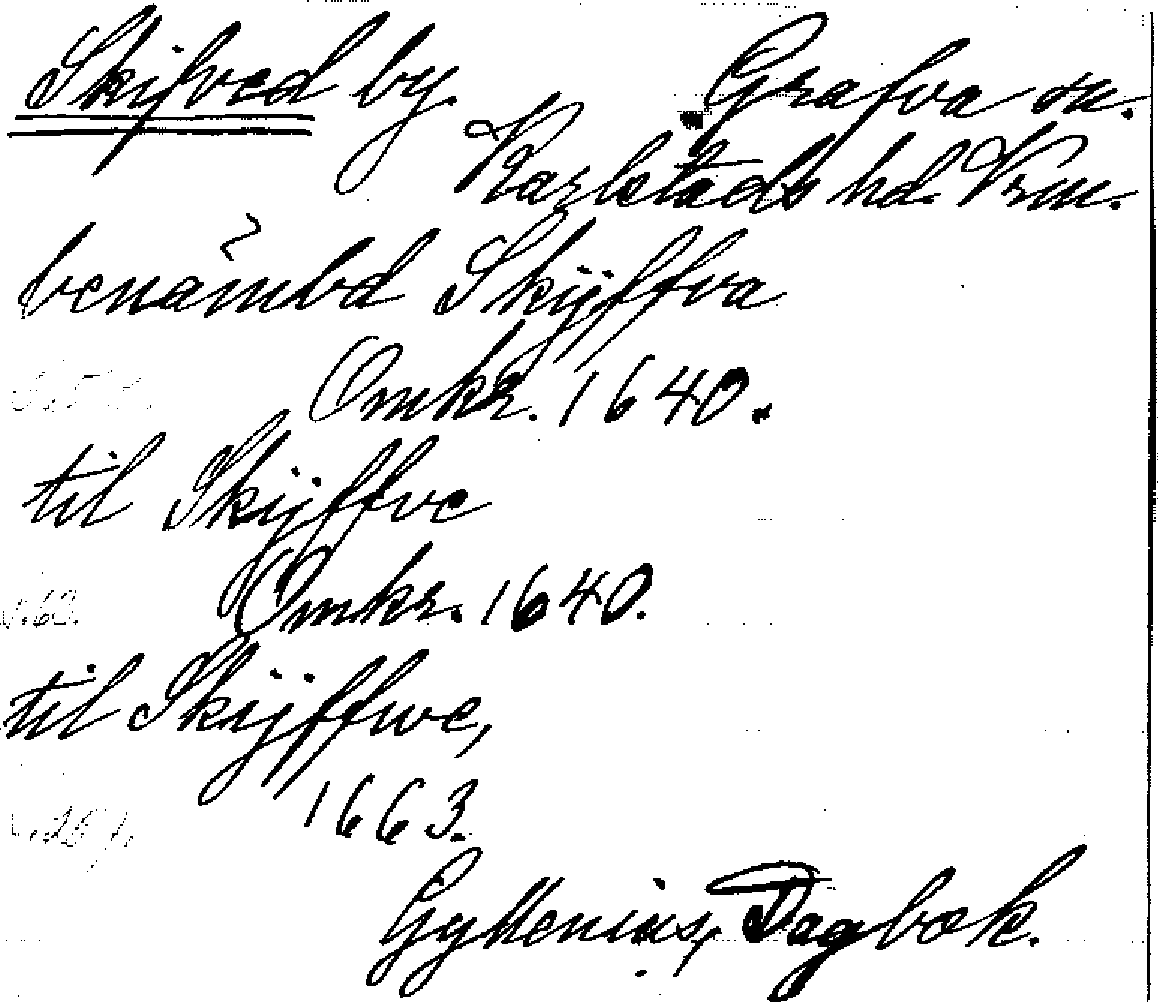 Skifved by. Grafva sn.
Karlstads hd. Vrm.
benämbd Skÿffva
Omkr. 1640.
til Skÿffve
s. 63. Omkr. 1640.
til Skÿffwe,
1663.
Gyllenius, Dagbok.